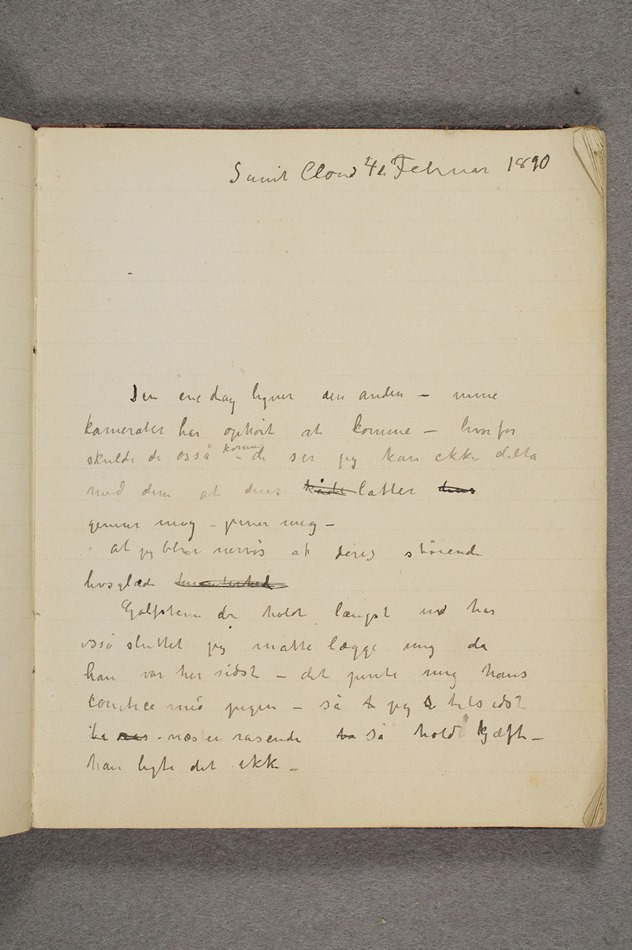 Saint Cloud 4de Februar 1890
Den ene dag ligner den anden – mine
kamerater har ophört at komme – hvorfor
skulde de også komme – de ser jeg kan ikke delta
med dem at deres kåde latter
generer mig – piner mig –
at jeg blir nervøs af deres störende
livsglæde
Goldstein der holdt længst ud har
også sluttet jeg måtte lægge mig da
han var her sidst – det pinte mig hans
med pigen – så jeg tilsidst
næsten rasende så hold kjæft –
han ligte det ikke –